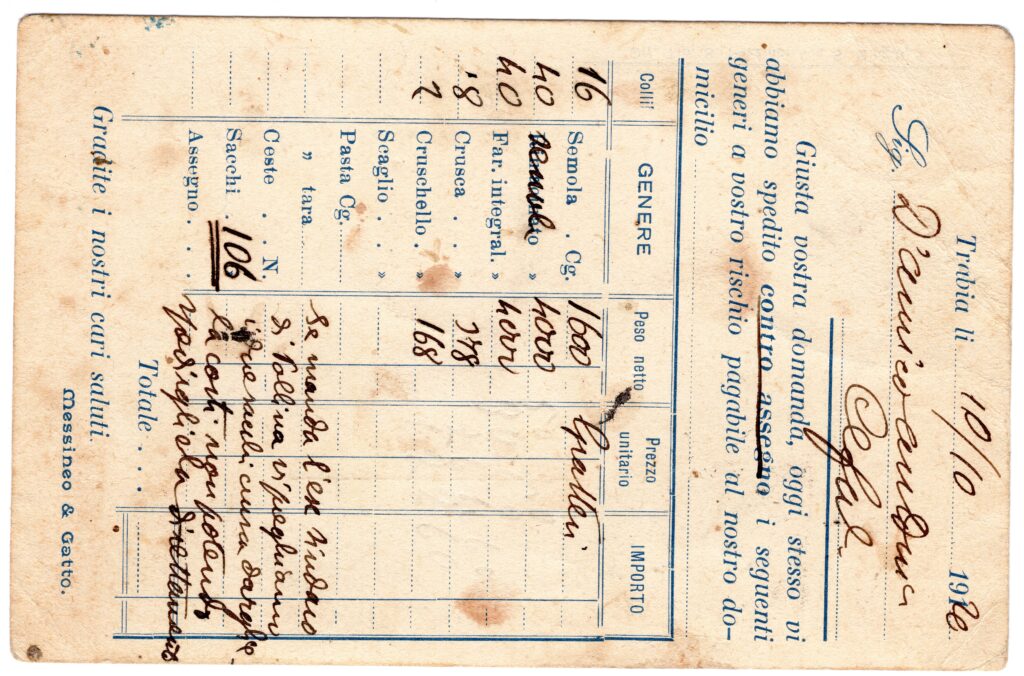 Trabia li 10/10 1920
Sig. D'amico
Cefalù
Giusta vostra domanda, oggi stesso vi
abbiamo spedito contro assegno i seguenti
generi a vostro rischio pagabile al nostro do-
micilio
Colli GENERE Peso netto Prezzo unitario IMPORTO
16 Semola . Cg. 1600
40 » 4000
40 Far. integral. » 4000
18 Crusca . . »
2 Cruschello . » 168
Scaglio . . »
Pasta Cg.
» tara
Ceste . . N.
Sacchi . 106
Assegno . . .
Se manda l'ex sindaco
di Pollina vi preghiamo
non potendo
direttamente
Totale . . .
Gradite i nostri cari saluti.
Messineo & Gatto.